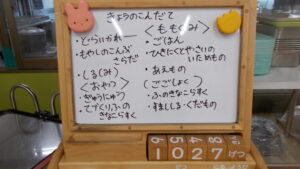 きょうのこんだて
・どらいかれー
・もやしのこんぶ
さらだ
・しる(み)
<おやつ>
・ぎゅうにゅう
・てづくりふの
きなこらすく
<ももぐみ>
・ごはん
・ひきにくとやさいの
いためもの
・あえもの
(ごごしょく)
・ふのきなこらすく
・すましじる・くだもの
1027
げつ